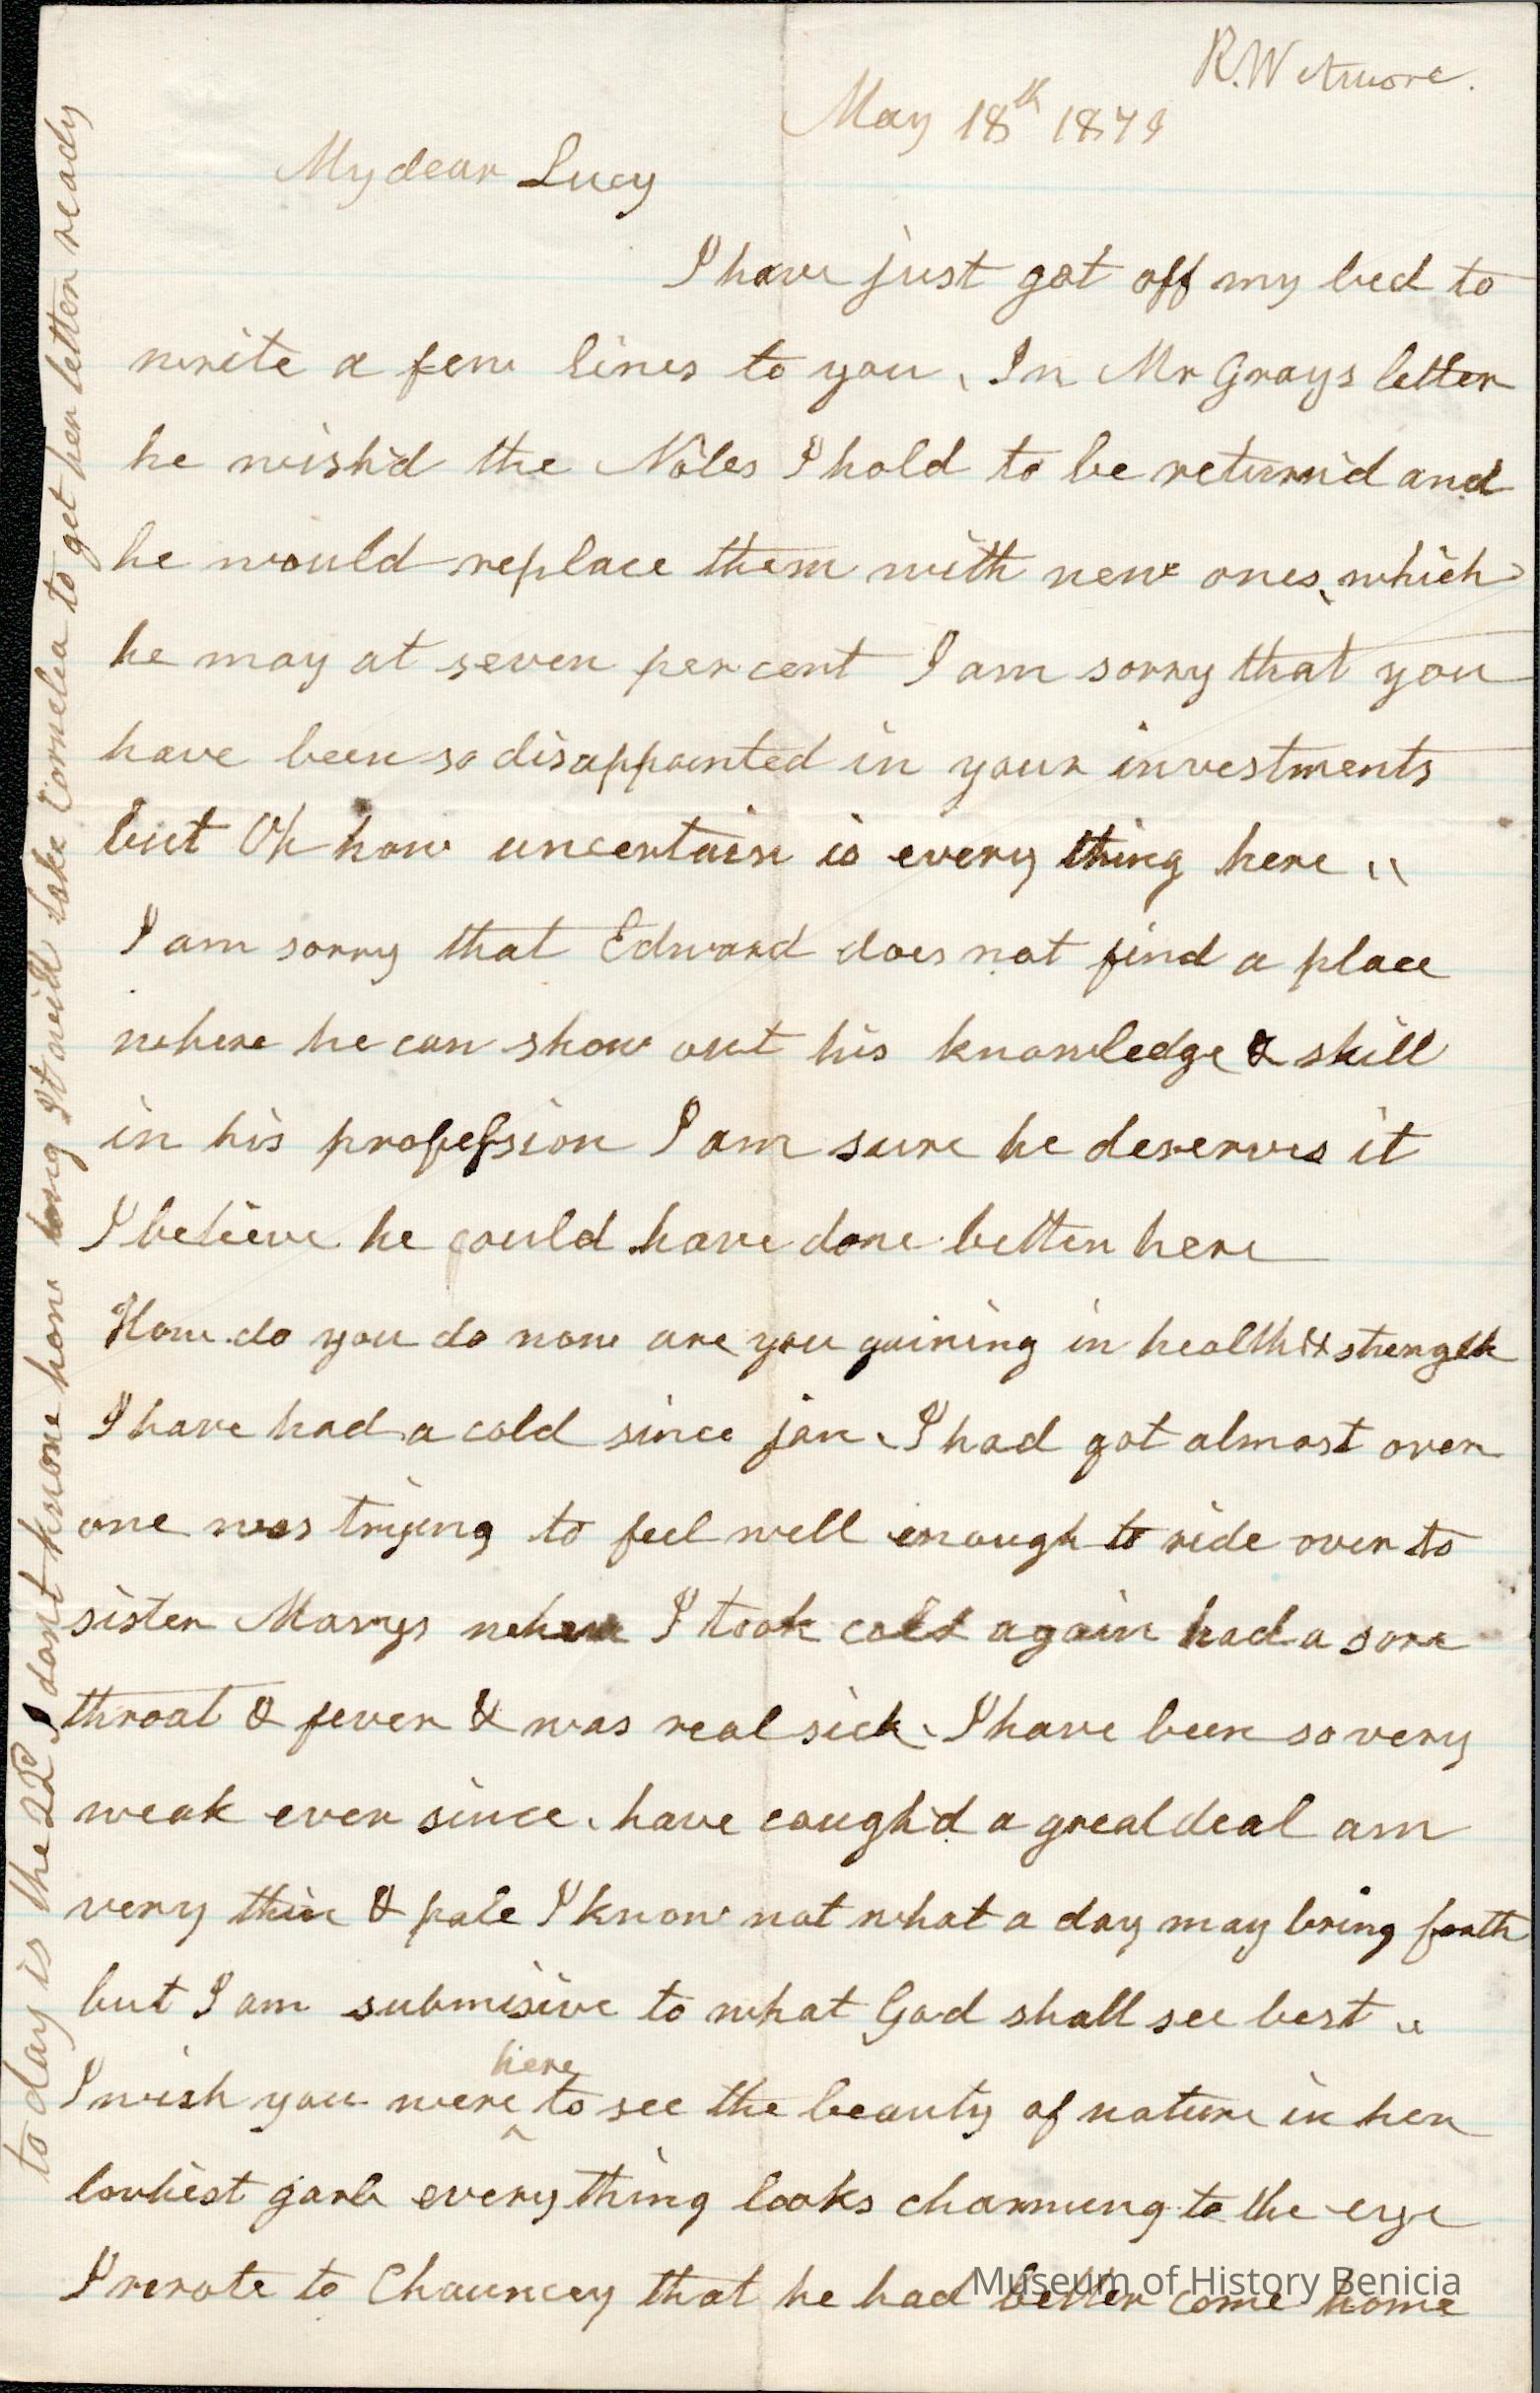 R. Wetmore.
May 18th 1879
My dear Lucy
I have just got off my bed to
write a few lines to you, In Mr Grays letter
he wish'd the Notes I hold to be return'd and
he would replace them with new ones, which
he may at seven percent I am sorry that you
have been so disappointed in your investments
but Oh how uncertain is every thing here "
I am sorry that Edward does not find a place
where he can show out his knowledge & skill
in his profession I am sure he deserves it
I believe he could have done better here
How do you do now are you gaining in health & strength
I have had a cold since jan, I had got almost over
one was trying to feel well enough to ride over to
sister Marys when I took cold again had a sore
throat & fever & was real sick, I have been so very
weak ever since, have cough'd a great deal am
very thin & pale I know not what a day may bring forth
but I am submisive to what God shall see best "
I wish you were here to see the beauty of nature in her
lovliest garb every thing looks charming to the eye
I wrote to Chauncey that he had better come home
to day is the 22d I dont know how long It will take Cornelia to get her letter ready
Museum of History Benicia